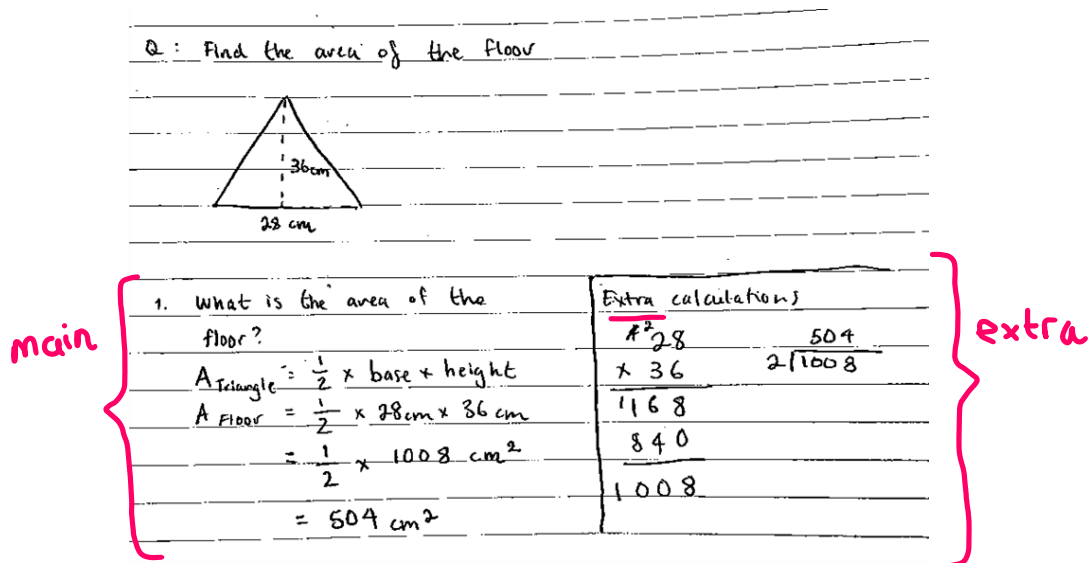 Q : Find the area of the floor
36cm
28 cm
main
1. What is the area of the
floor?
A Triangle = 1/2 × base × height
A Floor = 1/2 × 28cm × 36 cm
= 1/2 × 1008 cm²
= 504 cm²
Extra calculations
28
× 36
168
840
1008
504
2√1008
extra